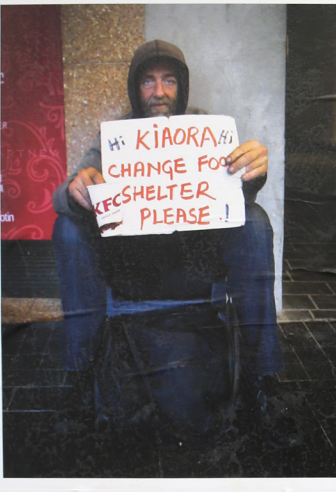 Hi KIAORA Hi
CHANGE FOO
KFC SHELTER
PLEASE !
otin